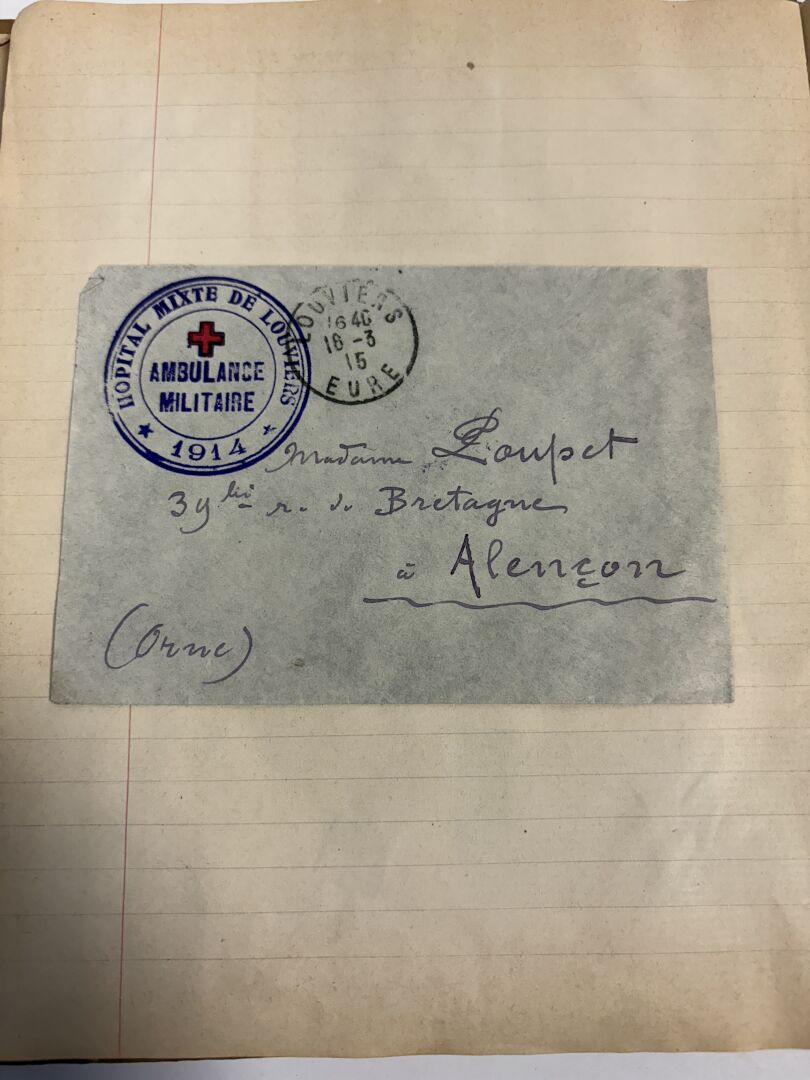 HOPITAL MIXTE DE LOUVIERS
AMBULANCE
MILITAIRE
★ 1914 ★
LOUVIERS
1640
16 -3
15
EURE
Madame Poupet
39 bis r. de Bretagne
à Alençon
(Orne)